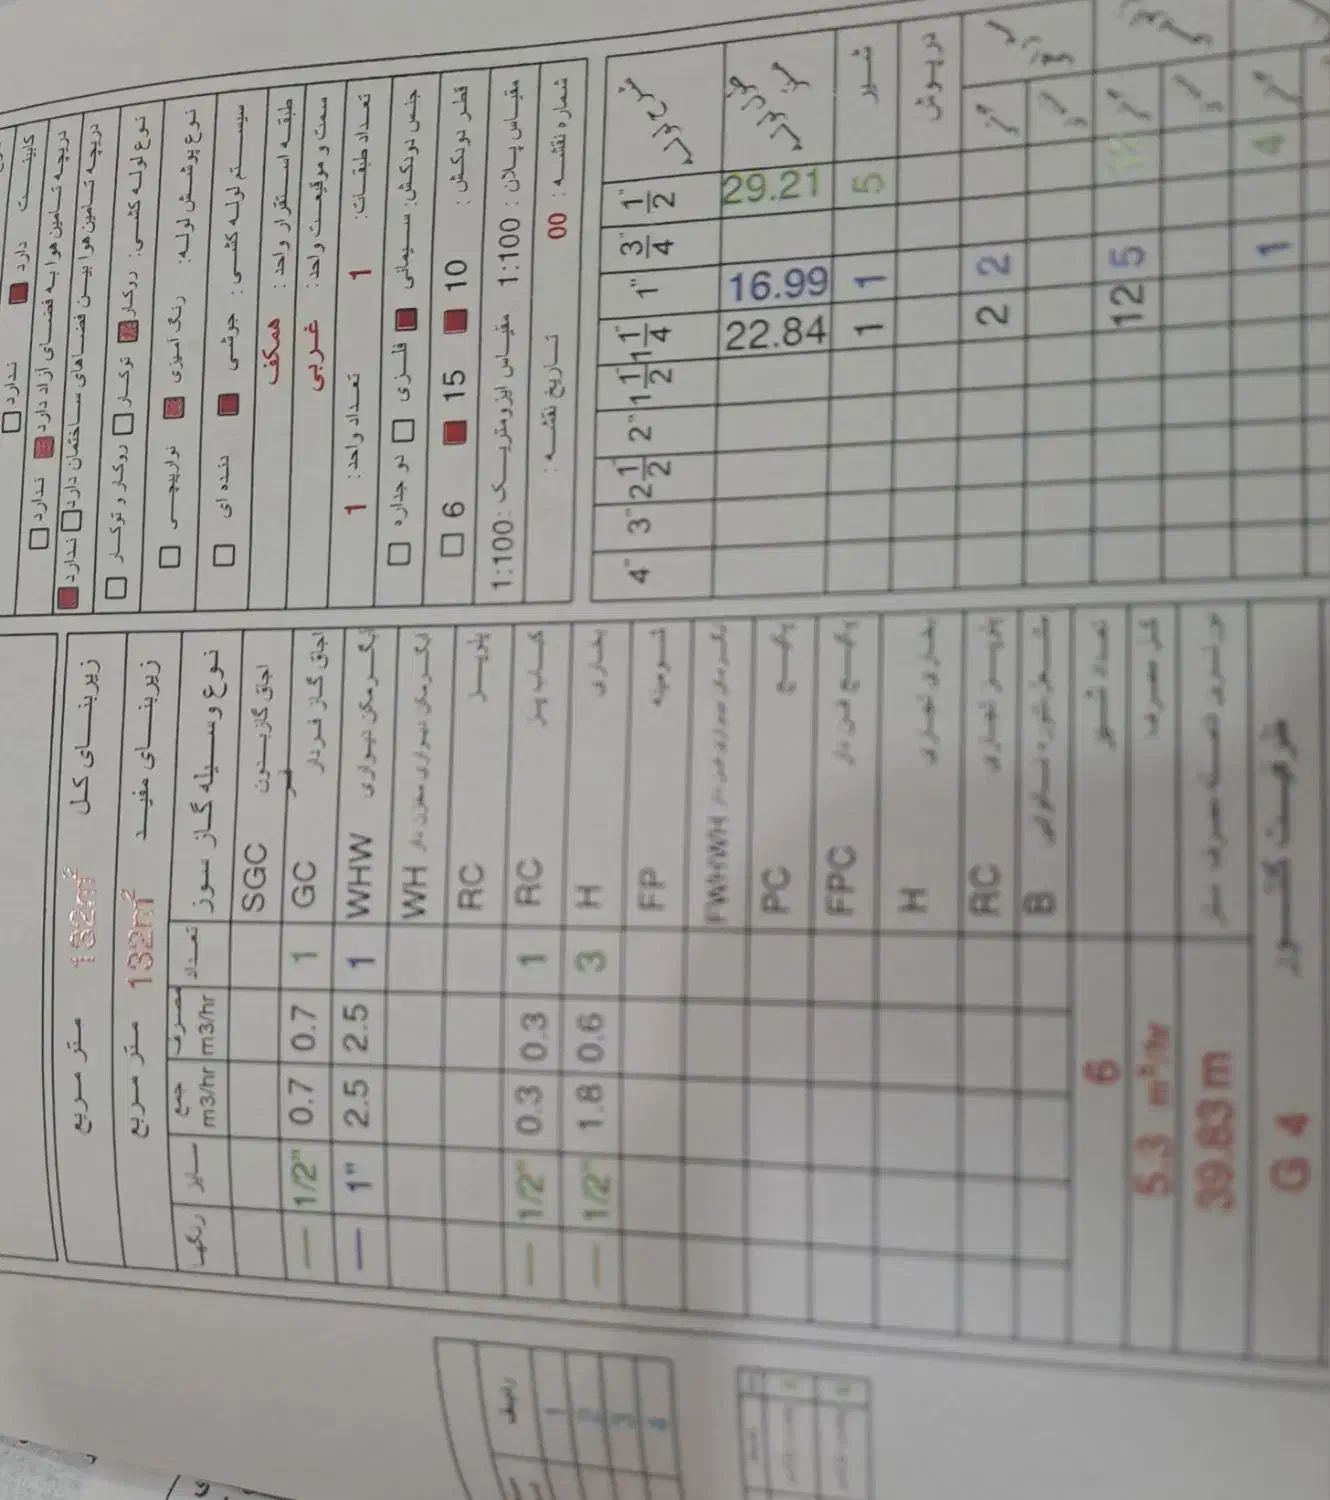 کابینت دارد ندارد
دریچه تامین هوا به فضای آزاد دارد ندارد
دریچه تامین هوا بین فضاهای ساختمان دارد ندارد
نوع لوله کشی: روکار توکار روکار و توکار
نوع پوشش لوله: رنگ آمیزی نوارپیچی
سیستم لوله کشی: جوشی دنده ای
طبقه استقرار واحد: همکف
سمت و موقعیت واحد: غربی
تعداد طبقات: 1 تعداد واحد: 1
جنس دودکش: سیمانی فلزی دو جداره
قطر دودکش: 10 15 6
مقیاس پلان: 1:100 مقیاس ایزومتریک: 1:100
شماره نقشه: 00 تاریخ نقشه:
شرح لوله 1/2" 3/4" 1" 1 1/4" 1 1/2" 2" 2 1/2" 3" 4"
29.21 16.99 22.84
شیر 5 1 1
درپوش
2 2
5 12
4 1
زیربنای کل 132m² متر مربع
زیربنای مفید 132m² متر مربع
نوع وسیله گاز سوز تعداد مصرف m3/hr جمع m3/hr سایز رنگها
اجاق گاز بدون فر SGC
اجاق گاز فردار GC 1 0.7 0.7 1/2"
آبگرمکن دیواری WHW 1 2.5 2.5 1"
آبگرمکن دیواری مخزن دار WH
پلوپز RC
کباب پز RC 1 0.3 0.3 1/2"
بخاری H 3 0.6 1.8 1/2"
شومینه FP
FWHWH
پکیج PC
پکیج فن دار FPC
بخاری تجاری H
پلوپز تجاری RC
B
تعداد شیر 6
کل مصرف 5.3 m³/hr
39.83 m
ظرفیت کنتور G 4
ردیف
1
2
3
4